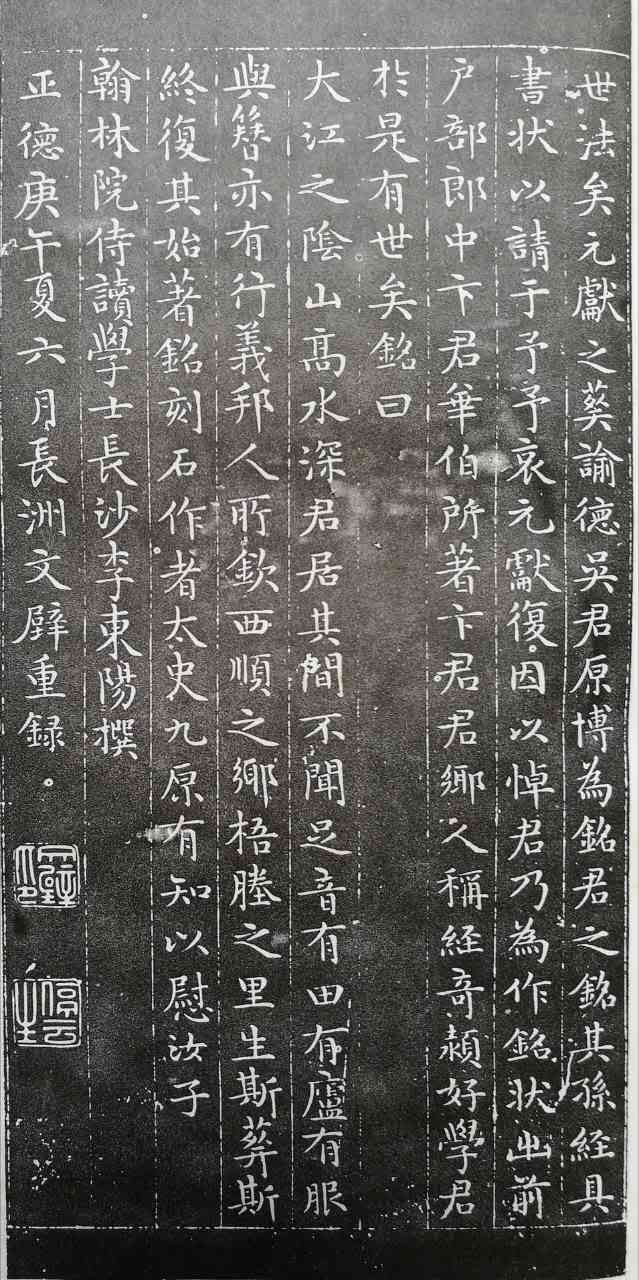 世法矣元獻之葬諭德吳君原博為銘君之銘其孫経具
書状以請于予予哀元獻復因以悼君乃為作銘状出前
户部郎中卞君華伯所著卞君君鄉人稱経奇頴好學君
扵是有世矣銘曰
大江之陰山高水深君居其間不聞足音有田有廬有服
與簪亦有行義邦人所欽西順之鄉梧塍之里生斯葬斯
終復其始著銘刻石作者太史九原有知以慰汝子
翰林院侍讀學士長沙李東陽撰
正德庚午夏六月長洲文璧重録